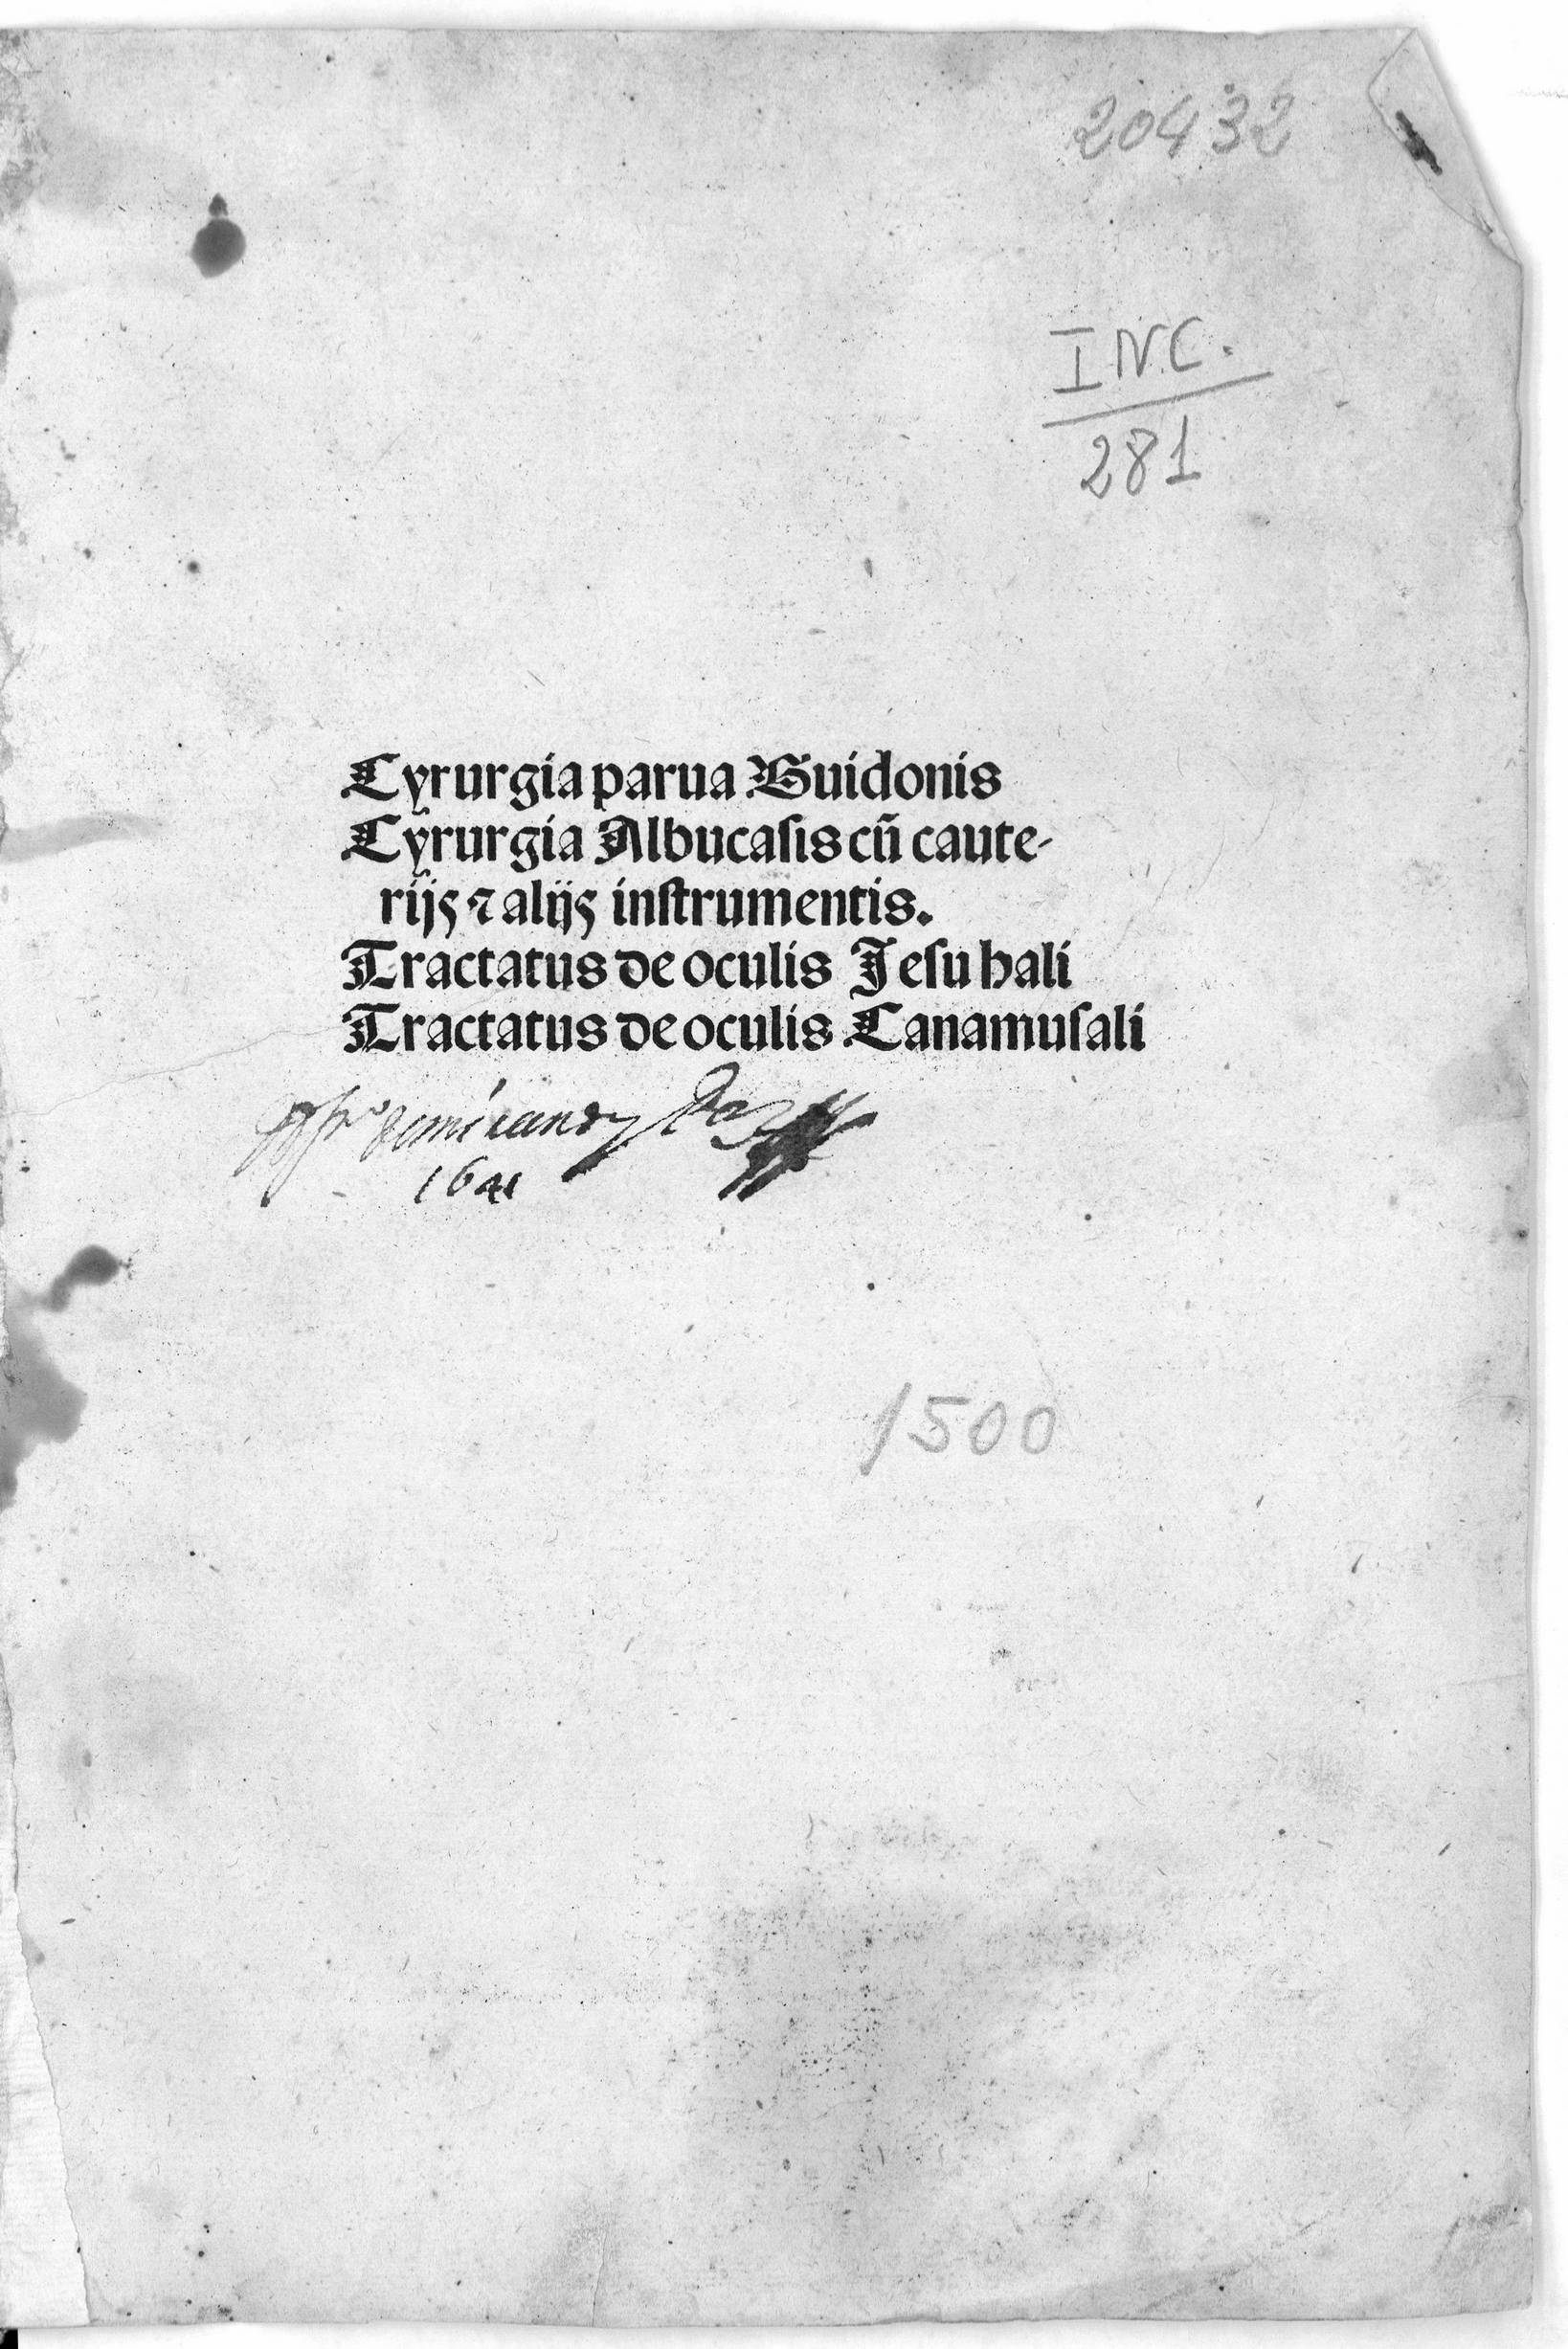 20432
I.N.C.
281
Cyrurgia parua Guidonis
Cyrurgia Albucasis cũ caute-
rijs ⁊ alijs instrumentis.
Tractatus de oculis Jesu hali
Tractatus de oculis Canamusali
1641
1500